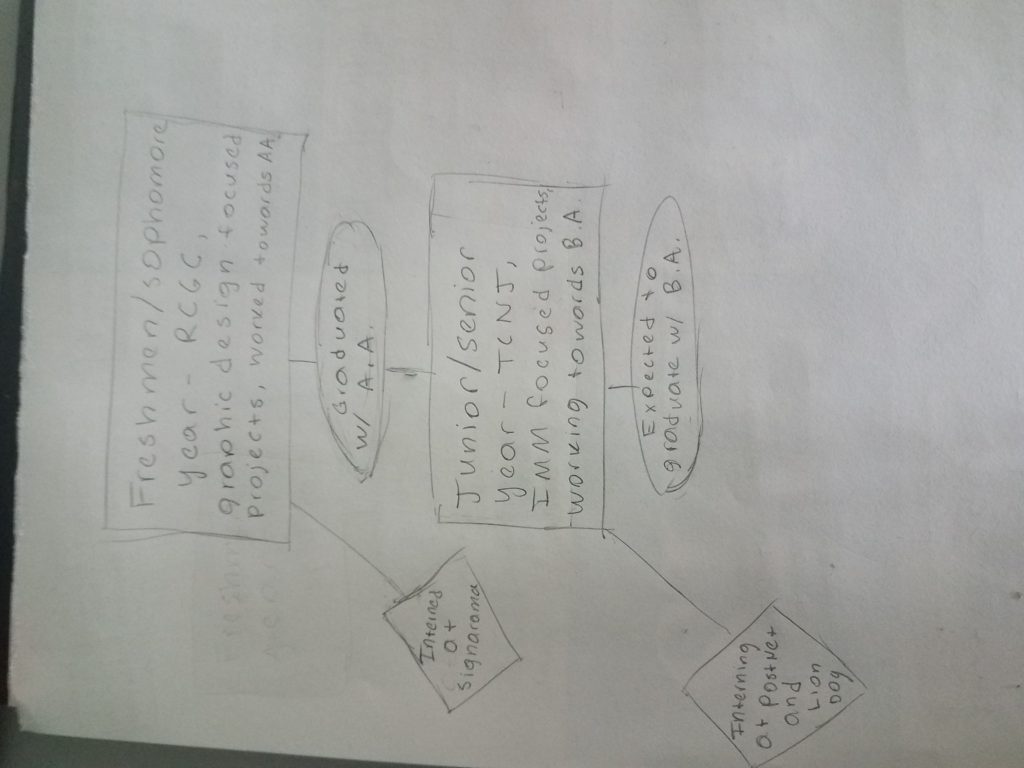 Freshmen/sophomore
year - RCGC,
graphic design focused
projects, worked towards AA
Graduated
w/ A.A.
Interned
at
signarama
Junior/senior
year - TCNJ,
IMM focused projects,
working towards B.A.
Expected to
graduate w/ B.A.
Interning
at
and
Lion
Dog